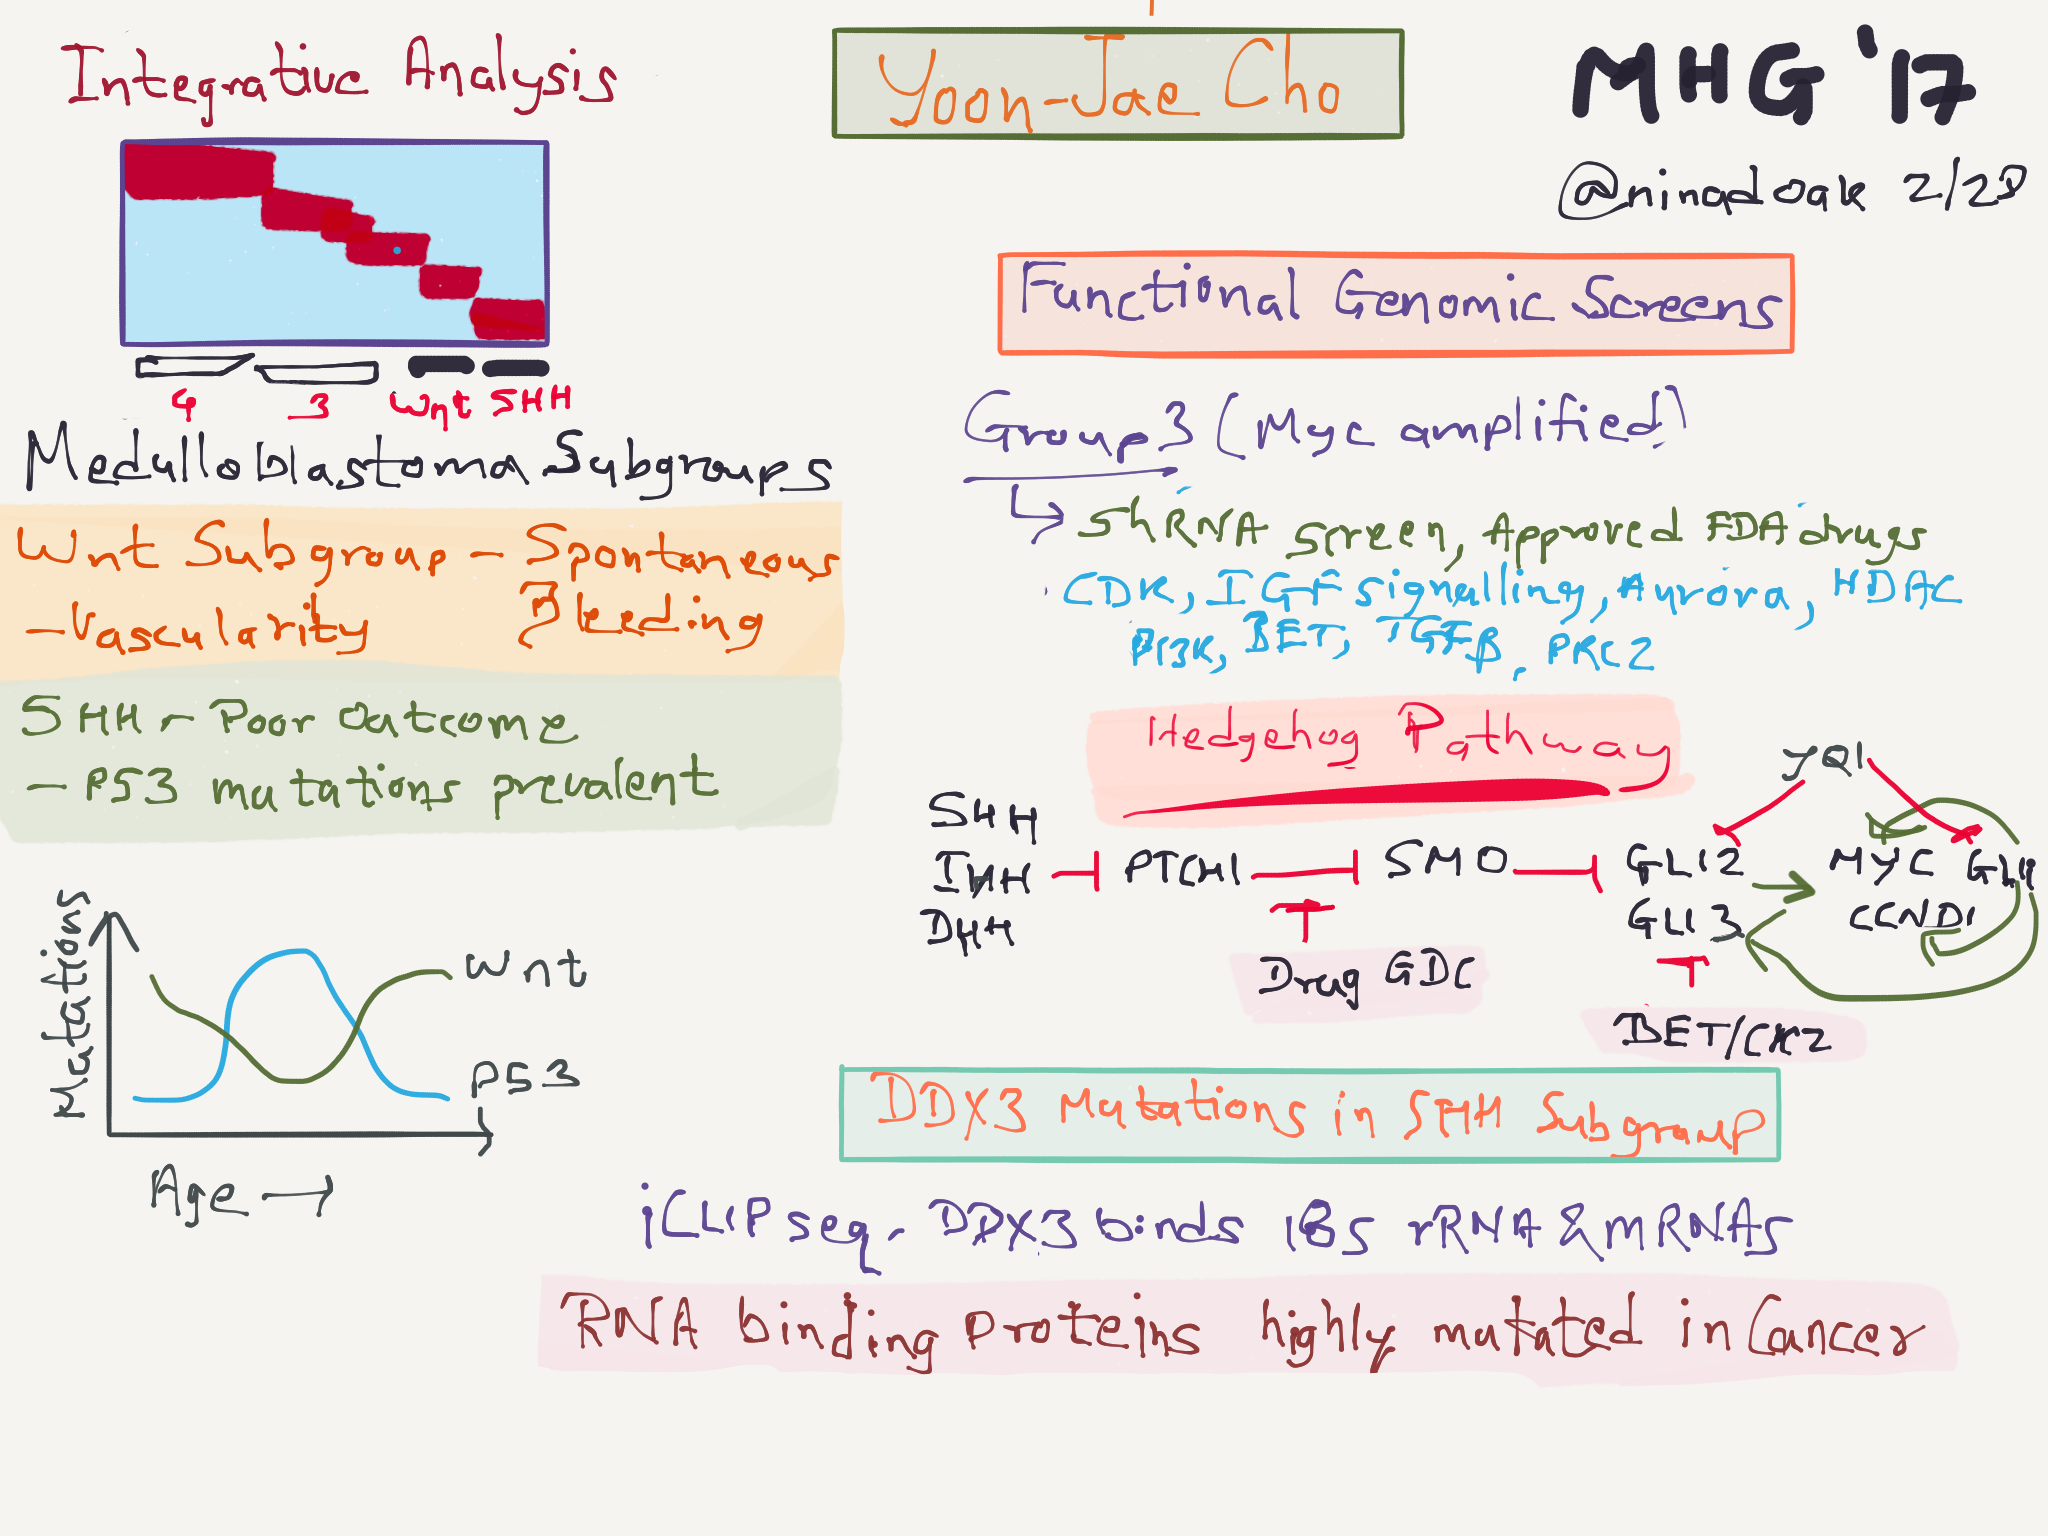 Yoon-Jae Cho
MHG '17
@ninadoak 2/2
Integrative Analysis
4 3 Wnt SHH
Medulloblastoma Subgroups
Wnt Subgroup - Spontaneous
Bleeding
- Vascularity
SHH - Poor Outcome
- P53 mutations prevalent
Mutations
Wnt
P53
Age →
Functional Genomic Screens
Group 3 (Myc amplified)
↳ ShRNA screen, Approved FDA drugs
CDK, IGF signalling, Aurora, HDAC
PI3K, BET, TGFβ, PRC2
Hedgehog Pathway
JQ1
SHH
IHH PTCH1 SMO GLI2 → MYC GLI1
DHH GLI3 CCND1
Drug GDC
BET/CK2
DDX3 Mutations in SHH Subgroup
iCLIP seq - DDX3 binds 18S rRNA & mRNAs
RNA binding proteins highly mutated in Cancer